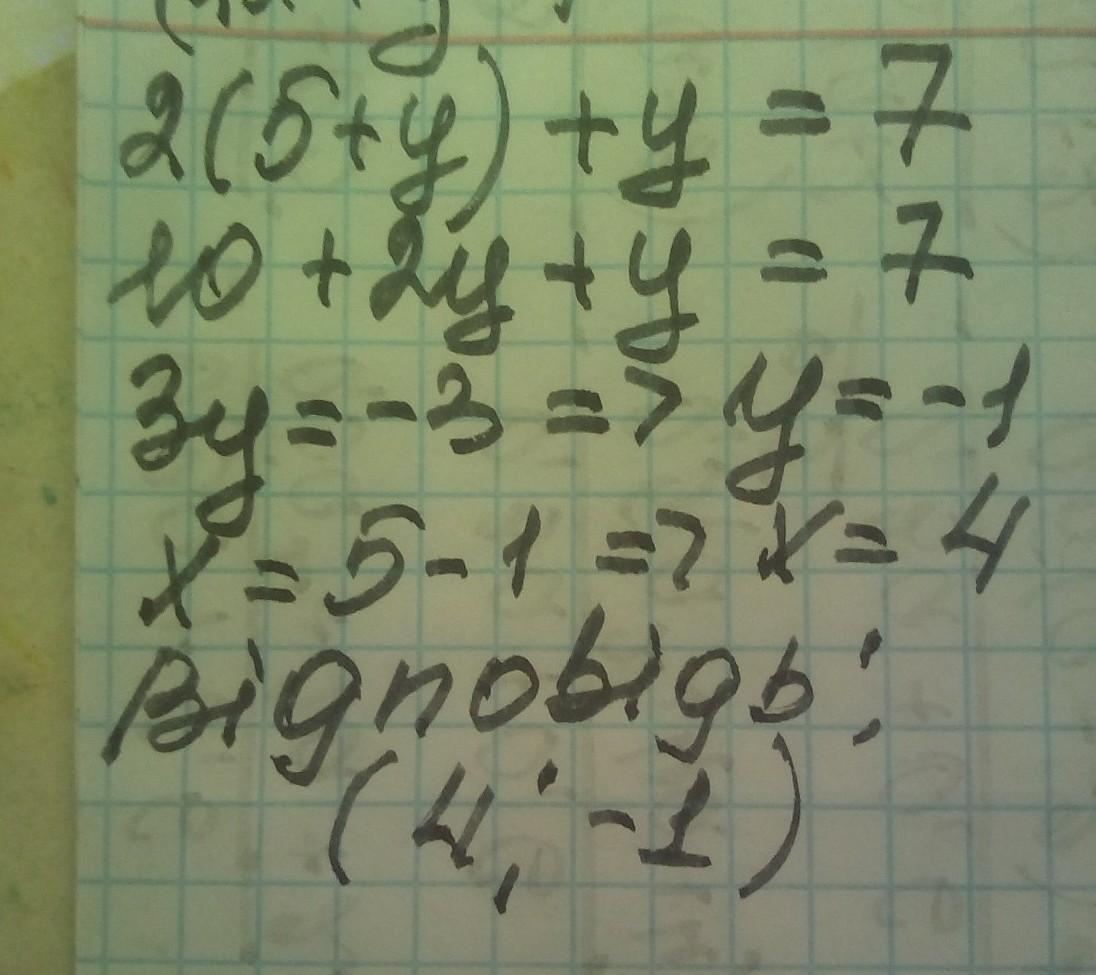 2(5+y) + y = 7
10 + 2y + y = 7
3y = -3 => y = -1
x = 5 - 1 => x = 4
Відповідь:
(4; -1)